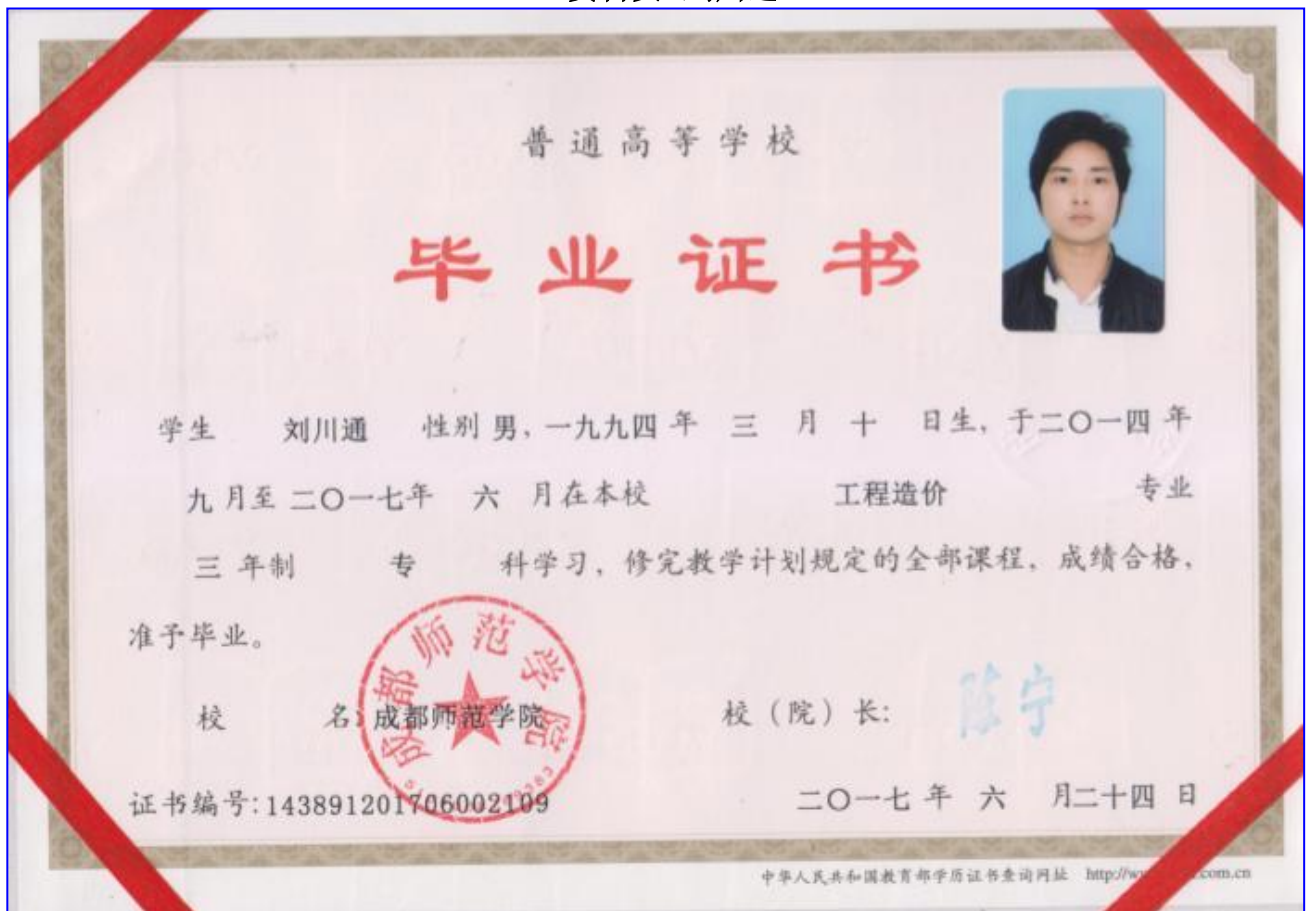 普通高等学校
毕业证书
学生 刘川通 性别 男，一九九四 年 三 月 十 日生，于二〇一四 年
九 月至 二〇一七年 六 月在本校 工程造价 专业
三 年制 专 科学习，修完教学计划规定的全部课程，成绩合格，
准予毕业。
成都师范学院
校 名：成都师范学院 校（院）长： 陈宁
证书编号：143891201706002109 二〇一七 年 六 月二十四 日
中华人民共和国教育部学历证书查询网址 http://w com.cn